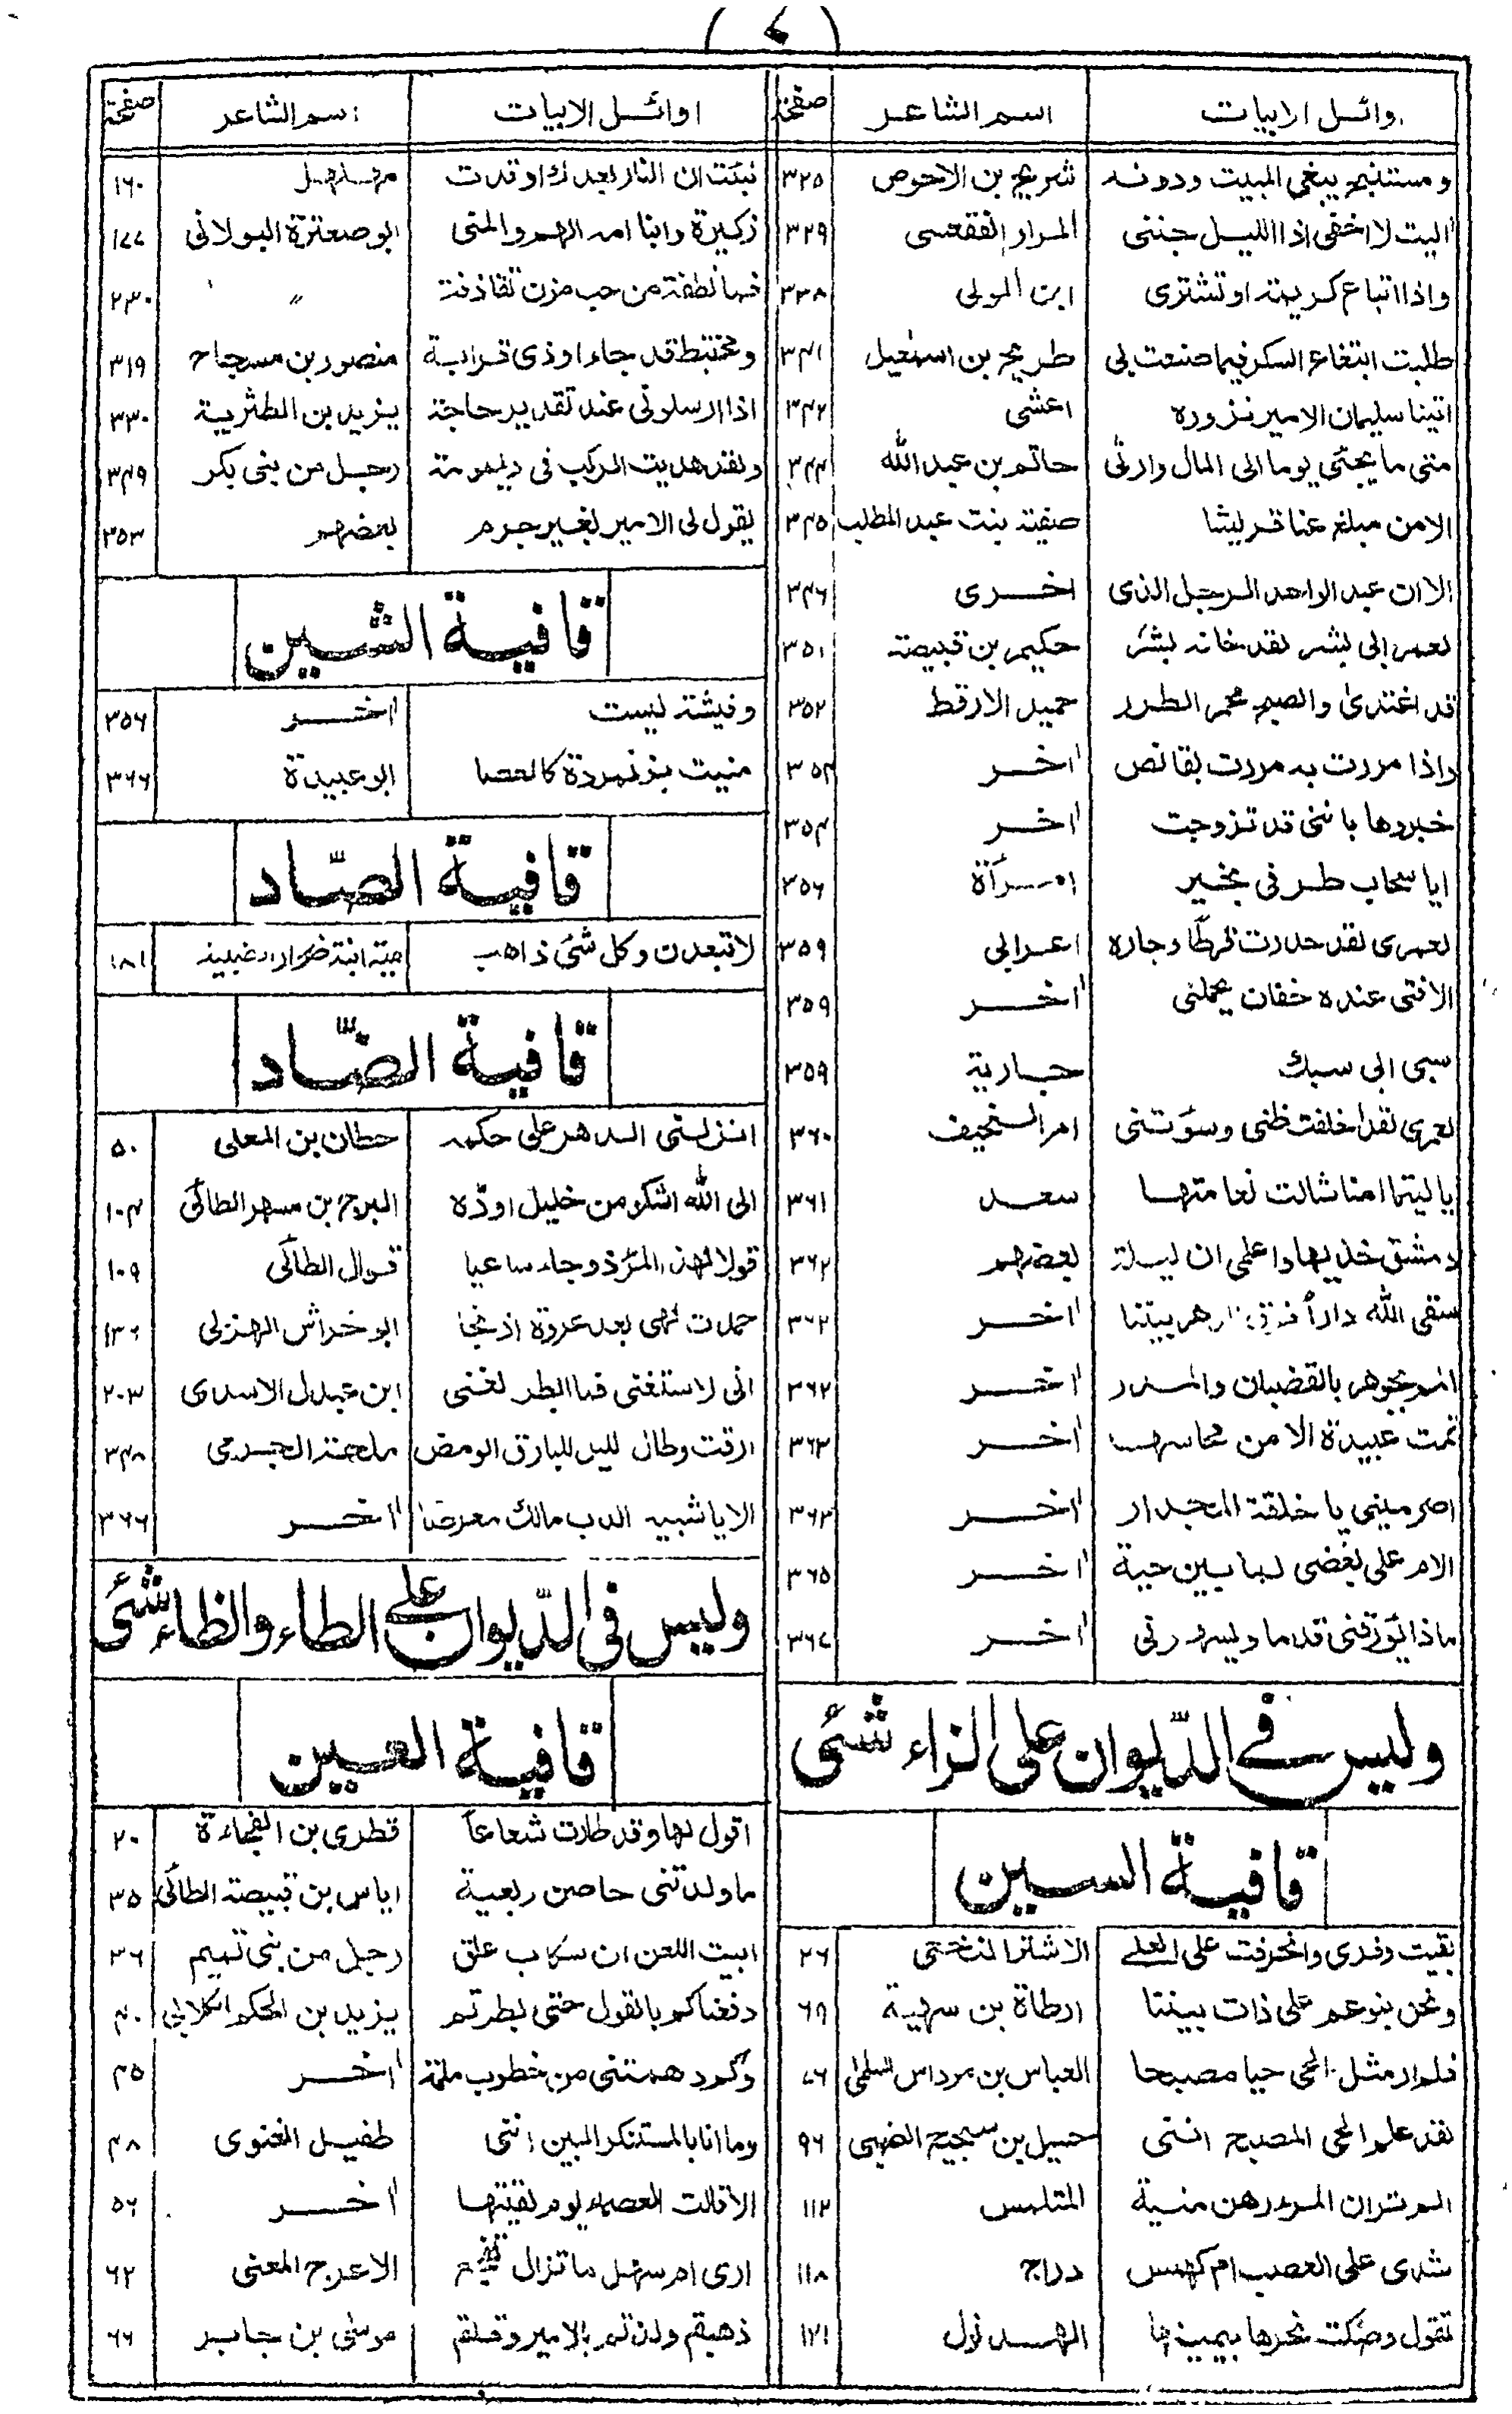 اوائل الابيات اسم الشاعر صفحة
ومستنبح يبغى المبيت ودونه شريح بن الاحوص ٣٢٥
اليت لا اخفى اذا الليل جننى المرار الفقعسى ٣٢٩
واذا تباع كريمة او تشترى ابن المولى ٣٣٨
طلبت ابتغاء الشكر فيما صنعت لى طريح بن اسمٰعيل ٣٤١
اتينا سليمان الامير نزوره اعشى ٣٤٢
متى ما يجئى يوما الى المال وارثى حاتم بن عبد الله ٣٤٤
الا من مبلغ عنا قريشا صفية بنت عبد المطلب ٣٤٥
الا ان عبد الواحد الرجل الذى اخرى ٣٤٦
لعمر ابى بشر لقد خانه بشر حكيم بن قبيصة ٣٥١
قد اغتدى والصبح محمر الطرر حميد الارقط ٣٥٢
واذا مررت به مررت بقانص اٰخر ٣٥٣
خبروها باننى قد تزوجت اٰخر ٣٥٤
ايا سحاب طرفى بخير امرأة ٣٥٦
لعمرى لقد حدرت قرطا وجاره اعرابى ٣٥٩
الا فتى عنده خفان يحملنى اٰخر ٣٥٩
سبى ابى سبك جارية ٣٥٩
لعمرى لقد اخلفت ظنى وسؤتنى ام النحيف ٣٦٠
يا ليتما امنا شالت نعامتها سعد ٣٦١
دمشق خذيها واعلمى ان ليلة بعضهم ٣٦٢
سقى الله دارا فرق الدهر بيننا اٰخر ٣٦٢
انم بجوهر بالقضبان والمدر اٰخر ٣٦٢
تمت عبيدة الا من محاسنها اٰخر ٣٦٣
اصرمينى يا خلقة المجدار اٰخر ٣٦٣
الام على بغضى لما بين حية اٰخر ٣٦٥
ماذا يؤرقنى قدما ويسهرنى اٰخر ٣٦٧
وليس فى الدّيوان على الزاء شئى
قافية السين
بقيت وفرى وانحرفت على العلى الاشتر النخعى ٢٦
ونحن بنو عم على ذات بيننا ارطاة بن سهية ٦٩
فلم ار مثل الحى حيا مصبحا العباس بن مرداس السلمى ٧٦
لقد علم الحى المصبح اننى حسيل بن سجيح الضبى ٩٦
الم تر ان المرء رهن منية المتلمس ١١٢
شدى على العصب ام كهمس دراج ١١٨
تقول وصكت نحرها بيمينها الهذلول ١٢١
اوائل الابيات اسم الشاعر صفحة
نبئت ان النار بعدك اوقدت مهلهل ١٦٠
زكيرة وابنا امه الهم والمنى ابو صعترة البولانى ١٧٧
فما نطفة من حب مزن تقاذفت // ٢٣٠
ومختبط قد جاء او ذى قرابة منصور بن مسجاح ٣١٩
اذا ارسلونى عند تقدير حاجة يزيد بن الطثرية ٣٣٠
ولقد هديت الركب فى ديمومة رجل من بنى بكر ٣٤٩
يقول لى الامير بغير جرم بعضهم ٣٥٣
قافية الشين
وفيشة ليست اٰخر ٣٥٦
منيت بزنمردة كالعصا ابو عبيدة ٣٦٦
قافية الصّاد
لا تبعدن وكل شئى ذاهب مية ابنة ضرار ١٨١
قافية الضّاد
انزلنى الدهر على حكمه حطان بن المعلى ٥٠
الى الله اشكو من خليل اودّه البرج بن مسهر الطائى ١٠٤
قولا لهذا المرء ذو جاء ساعيا قوال الطائى ١٠٩
حمدت الهى بعد عروة اذ نجا ابو خراش الهذلى ١٣٦
انى لاستغنى فما ابطر الغنى ابن عبدل الاسدى ٢٠٣
ارقت وطال ليل للبارق الومض ملحة الجرمى ٣٤٨
الا يا شبيه الدب مالك معرضا اٰخر ٣٦٦
وليس فى الدّيوان على الطاء والظاء شئى
قافية العين
اقول لها وقد طارت شعاعا قطرى بن الفجاءة ٢٠
ما ولدتنى حاصن ربعية اياس بن قبيصة الطائى ٣٥
ابيت اللعن ان سكاب علق رجل من بنى تميم ٣٦
دفعناكم بالقول حتى بطرتم يزيد بن الحكم الكلابى ٤٠
وكم دهمتنى من خطوب ملمة اٰخر ٤٥
وما انا بالمستنكر البين اننى طفيل الغنوى ٤٨
الا قالت العصماء يوم لقيتها اٰخر ٥٦
ارى ام سهل ما تزال تفجع الاعرج المعنى ٦٢
ذهبتم ولذتم بالامير وقلتم موسى بن جابر ٦٦